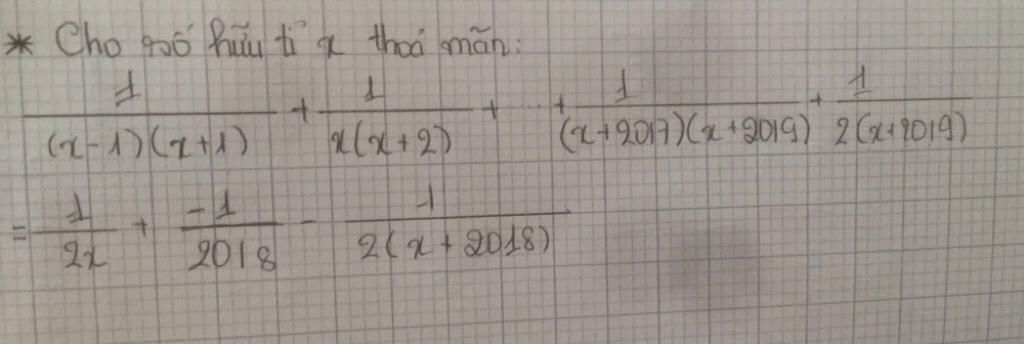 * Cho số hữu tỉ x thoả mãn:
1/((x-1)(x+1)) + 1/(x(x+2)) + ... + 1/((x+2017)(x+2019)) + 1/(2(x+2019))
= 1/(2x) + (-1)/2018 - 1/(2(x+2018))